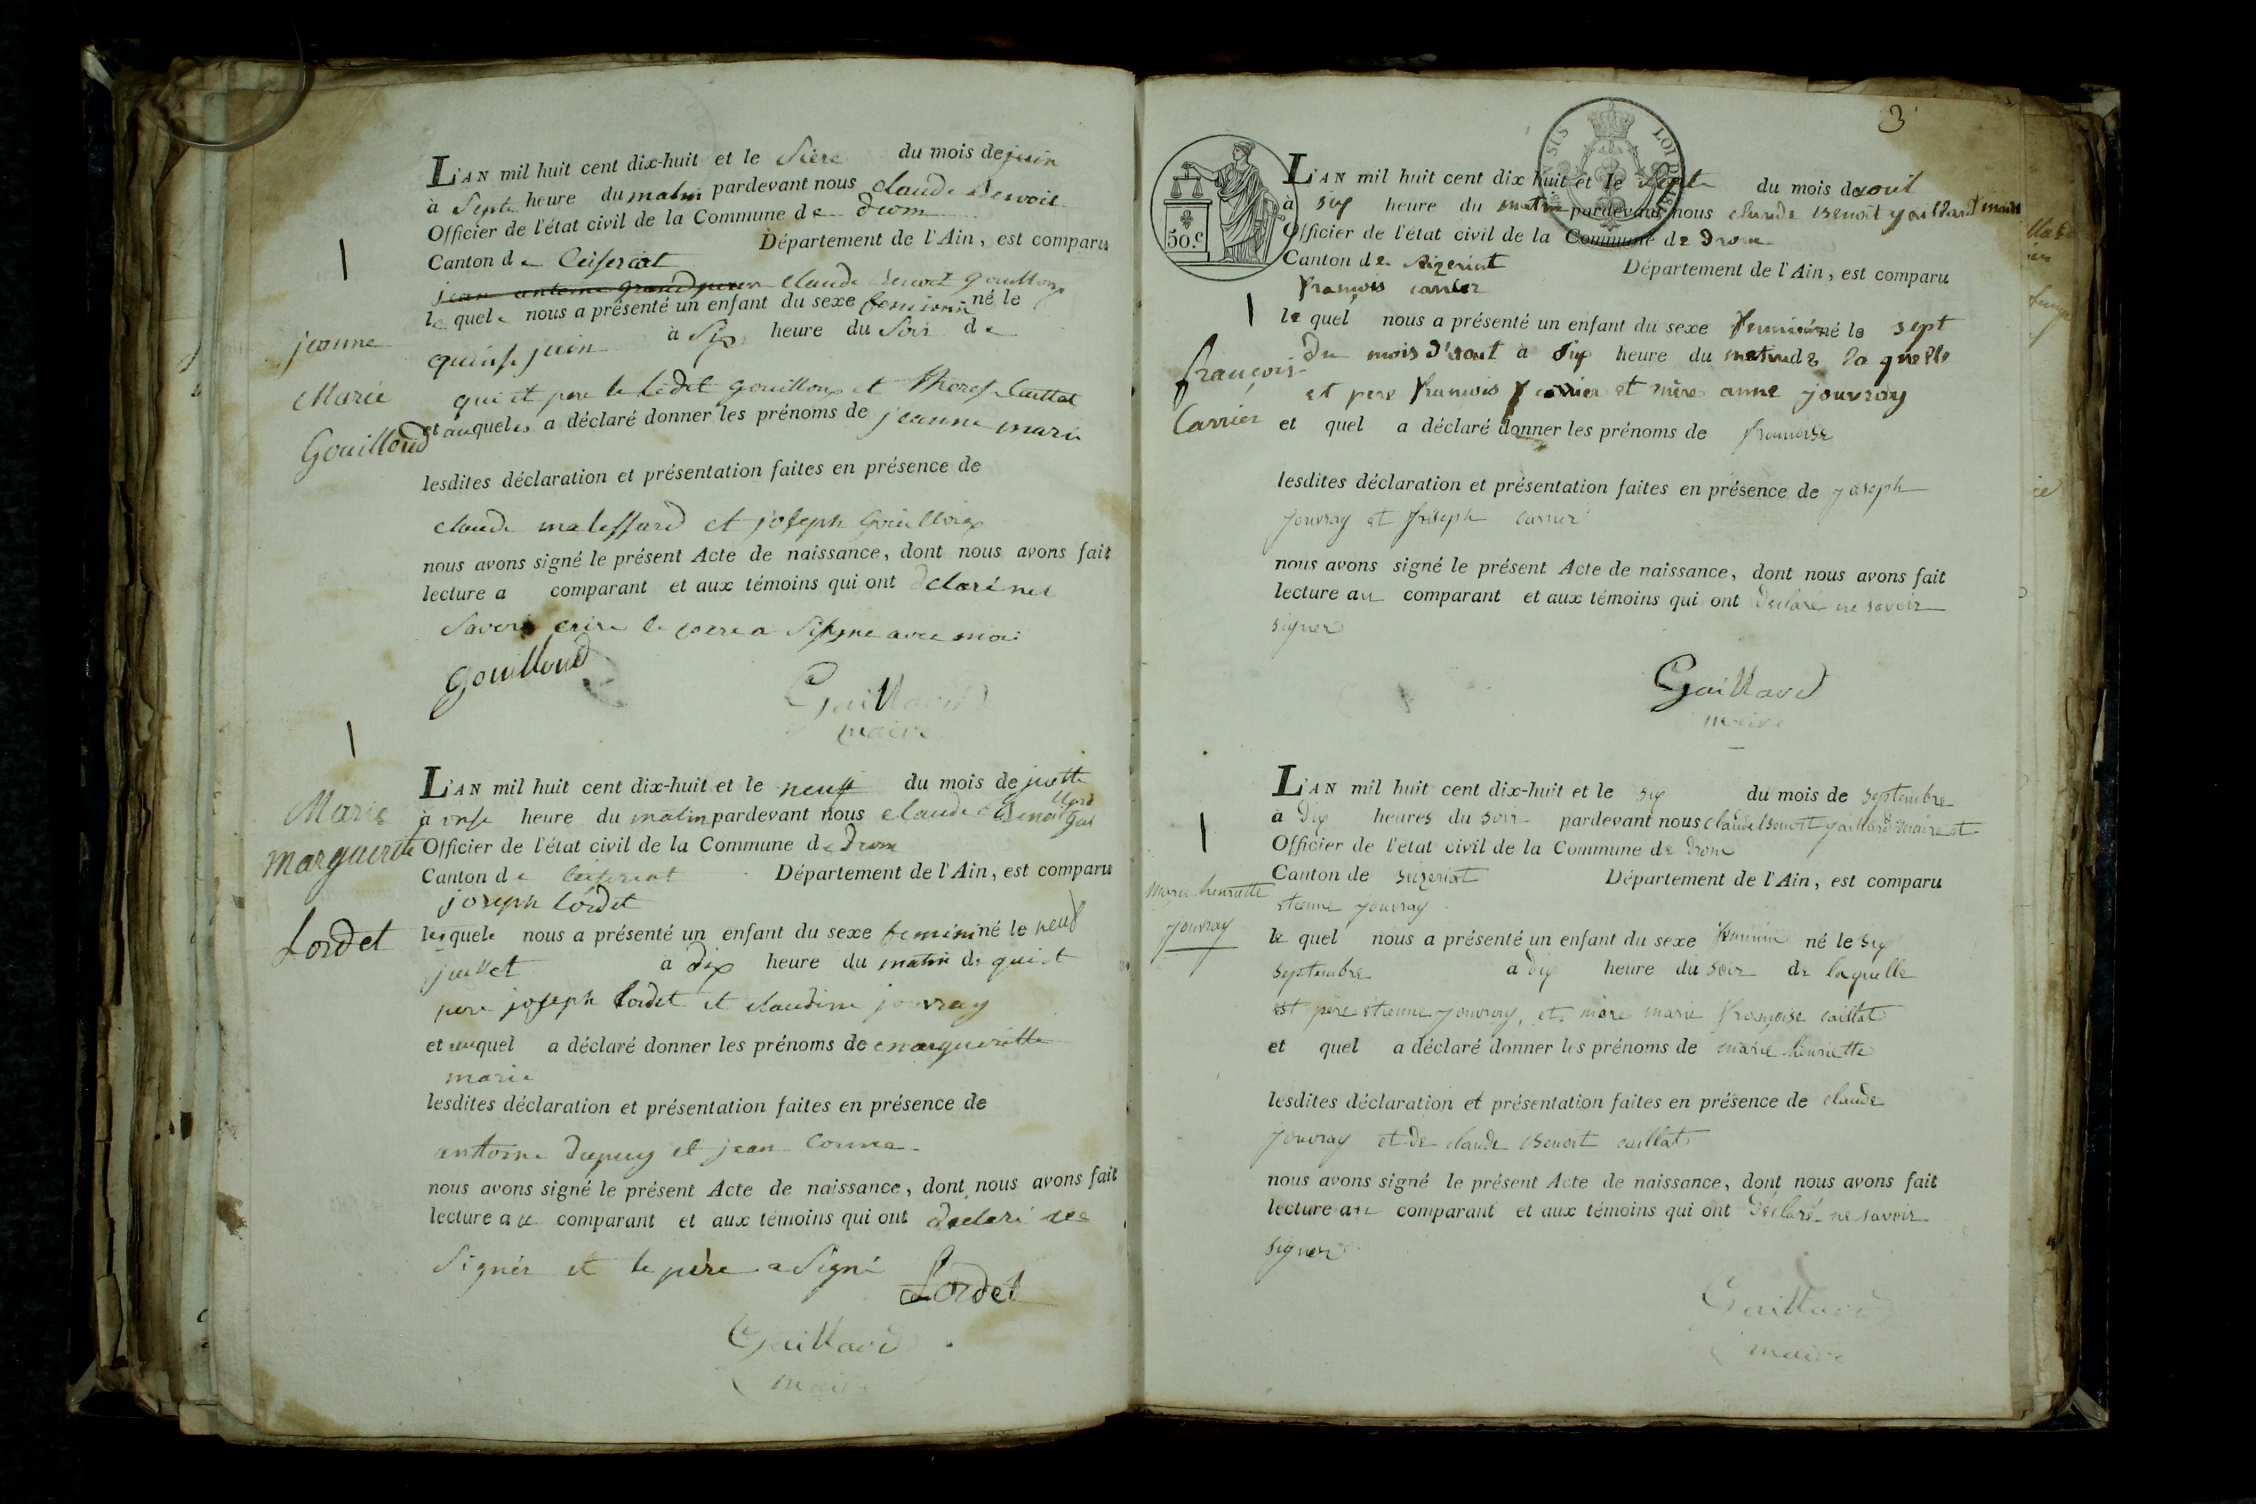 L'AN mil huit cent dix-huit et le du mois de juin
à Septe heure du matin pardevant nous claude Benoit
Officier de l'état civil de la Commune de drom
Canton de Département de l'Ain, est comparu
jean antoine claude benoit gouilloux
le quele nous a présenté un enfant du sexe feminin né le
quinse juin à Six heure du Soir de
qui et pere le gouilloux et
et auqueles a déclaré donner les prénoms de jeanne marie
lesdites déclaration et présentation faites en présence de
claude et joseph
nous avons signé le présent Acte de naissance, dont nous avons fait
lecture a comparant et aux témoins qui ont
Savoir le pere a avec moi
Gouilloud
Gaillard
maire
jeanne
Marie
Gouilloud
L'AN mil huit cent dix-huit et le neuf du mois de
à onse heure du matin pardevant nous claude Benoit
Officier de l'état civil de la Commune de Drom
Canton de Département de l'Ain, est comparu
joseph Lordet
lequele nous a présenté un enfant du sexe feminin né le neuf
juillet à dix heure du matin de qui et
pere joseph Lordet et claudine jouvray
et auquel a déclaré donner les prénoms de margueritte
marie
lesdites déclaration et présentation faites en présence de
antoine dupuy et jean
nous avons signé le présent Acte de naissance, dont nous avons fait
lecture au comparant et aux témoins qui ont
Signér et le père a Signé
Lordet
Gaillard
maire
Marie
marguerite
Lordet
3
50.c
L'AN mil huit cent dix huit et le Septe du mois
à six heure du matin pardevant nous claude benoit gaillard maire
Officier de l'état civil de la Commune de drom
Canton de Département de l'Ain, est comparu
François carrier
le quel nous a présenté un enfant du sexe né le sept
du mois d'aout à Six heure du matin de la quelle
et pere françois carrier et mère anne jouvray
et quel a déclaré donner les prénoms de
lesdites déclaration et présentation faites en présence de joseph
jouvray et joseph carrier
nous avons signé le présent Acte de naissance, dont nous avons fait
lecture au comparant et aux témoins qui ont déclaré ne savoir
signer
Gaillard
maire
françois
Carrier
L'AN mil huit cent dix-huit et le six du mois de septembre
à dix heures du soir pardevant nous claude benoit gaillard maire et
Officier de l'etat civil de la Commune de drom
Canton de Département de l'Ain, est comparu
etienne jouvray
le quel nous a présenté un enfant du sexe feminin né le six
septembre à dix heure du soir de laquelle
est père etienne jouvray, et mère marie françoise caillat
et quel a déclaré donner les prénoms de marie henriette
lesdites déclaration et présentation faites en présence de claude
jouvray et de claude benoit caillat
nous avons signé le présent Acte de naissance, dont nous avons fait
lecture au comparant et aux témoins qui ont déclaré ne savoir
signer
Gaillard
maire
Marie henriette
jouvray